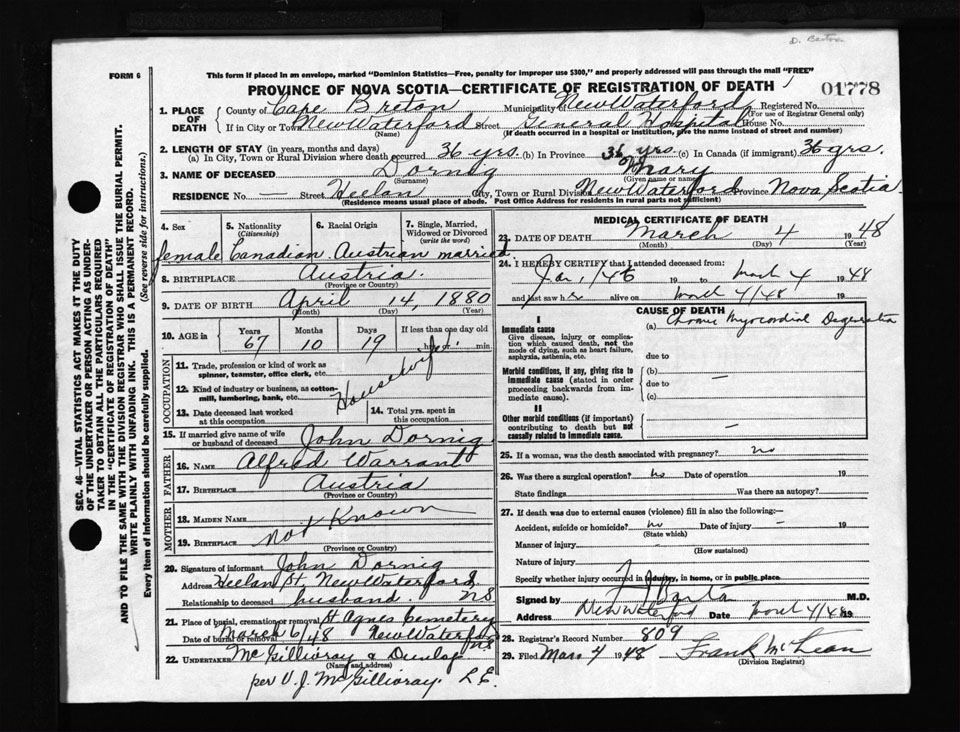 D. Barton
FORM 6
This form if placed in an envelope, marked "Dominion Statistics—Free, penalty for improper use $300," and properly addressed will pass through the mail "FREE"
PROVINCE OF NOVA SCOTIA—CERTIFICATE OF REGISTRATION OF DEATH
01778
1. PLACE OF DEATH County of Cape Breton Municipality New Waterford Registered No.
(For use of Registrar General only)
If in City or Town New Waterford Street General Hospital House No.
(Name) (If death occurred in a hospital or institution, give the name instead of street and number)
2. LENGTH OF STAY (in years, months and days)
(a) In City, Town or Rural Division where death occurred 36 yrs. (b) In Province 36 yrs. (c) In Canada (if immigrant) 36 yrs.
3. NAME OF DECEASED Dornig Mary
(Surname) (Given name or names)
RESIDENCE No. — Street Heelan City, Town or Rural Division New Waterford Province Nova Scotia
(Residence means usual place of abode. Post Office Address for residents in rural parts not sufficient)
4. Sex 5. Nationality (Citizenship) 6. Racial Origin 7. Single, Married, Widowed or Divorced (write the word)
female Canadian Austrian married
8. BIRTHPLACE Austria.
(Province or Country)
9. DATE OF BIRTH April 14, 1880
(Month) (Day) (Year)
10. AGE in Years Months Days If less than one day old
67 10 19 hrs. or min
OCCUPATION
11. Trade, profession or kind of work as spinner, teamster, office clerk, etc.
Housewife
12. Kind of industry or business, as cotton-mill, lumbering, bank, etc.
13. Date deceased last worked at this occupation
14. Total yrs. spent in this occupation
15. If married give name of wife or husband of deceased John Dornig.
FATHER
16. NAME Alfred Warrant
17. BIRTHPLACE Austria
(Province or Country)
MOTHER
18. MAIDEN NAME
not Known
19. BIRTHPLACE
(Province or Country)
20. Signature of informant John Dornig
Address Heelan St. New Waterford
NS
Relationship to deceased husband.
21. Place of burial, cremation or removal St Agnes Cemetery
Date of burial or removal March 6/48 New Waterford
NS
22. UNDERTAKER McGillivray & Dunlop
(Name and address)
per V. J. McGillivray. L.E.
MEDICAL CERTIFICATE OF DEATH
23. DATE OF DEATH March 4 1948
(Month) (Day) (Year)
24. I HEREBY CERTIFY that I attended deceased from:
Jan, 14th 19 to March 4 1948
and last saw her alive on March 4/48 19
CAUSE OF DEATH
I
Immediate cause
Give disease, injury or complication which caused death, not the mode of dying, such as heart failure, asphyxia, asthenia, etc.
(a) Chronic Myocardial Degeneration
due to
Morbid conditions, if any, giving rise to immediate cause (stated in order proceeding backwards from immediate cause).
(b) —
due to
(c)
II
Other morbid conditions (if important) contributing to death but not causally related to immediate cause.
—
25. If a woman, was the death associated with pregnancy? no
26. Was there a surgical operation? no Date of operation 19
State findings Was there an autopsy?
27. If death was due to external causes (violence) fill in also the following:—
Accident, suicide or homicide? no Date of injury — 19
(State which)
Manner of injury —
(How sustained)
Nature of injury
Specify whether injury occurred in industry, in home, or in public place.
Signed by M.D.
Address New Waterford Date March 4/48 19
28. Registrar's Record Number 809
29. Filed Mar 4 1948 Frank McLean
(Division Registrar)
SEC. 46—VITAL STATISTICS ACT MAKES IT THE DUTY
OF THE UNDERTAKER OR PERSON ACTING AS UNDER-
TAKER TO OBTAIN ALL THE PARTICULARS REQUIRED
IN THE "CERTIFICATE OF REGISTRATION OF DEATH"
AND TO FILE THE SAME WITH THE DIVISION REGISTRAR WHO SHALL ISSUE THE BURIAL PERMIT.
WRITE PLAINLY WITH UNFADING INK. THIS IS A PERMANENT RECORD.
Every item of Information should be carefully supplied. (See reverse side for instructions.)